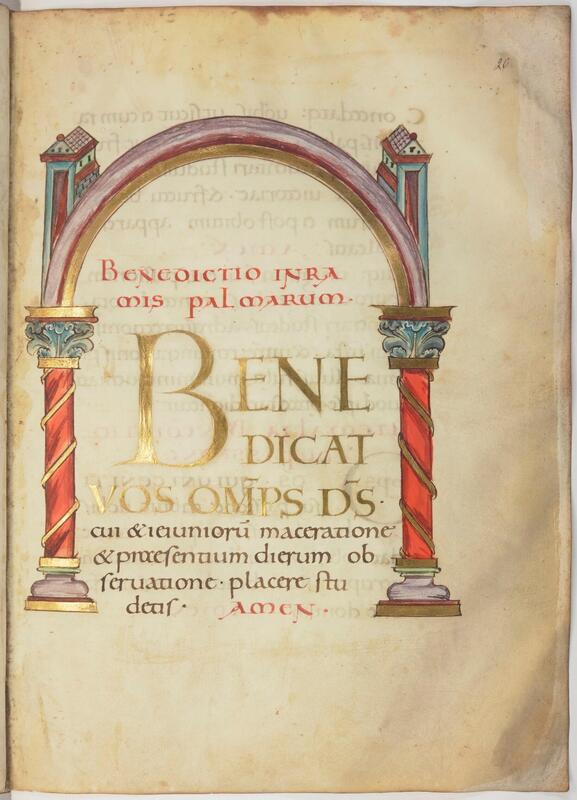 20
BENEDICTIO IN RA
MIS PALMARUM·
BENE
DICAT
VOS OM̅PS D̅S·
cui & ieiuniorū maceratione
& praesentium dierum ob
seruatione· placere stu
detis· AMEN·